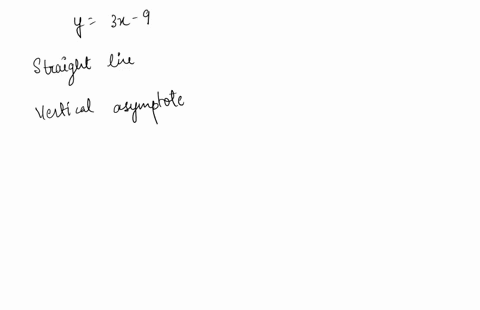 y = 3x - 9
Straight line
Vertical asymptote